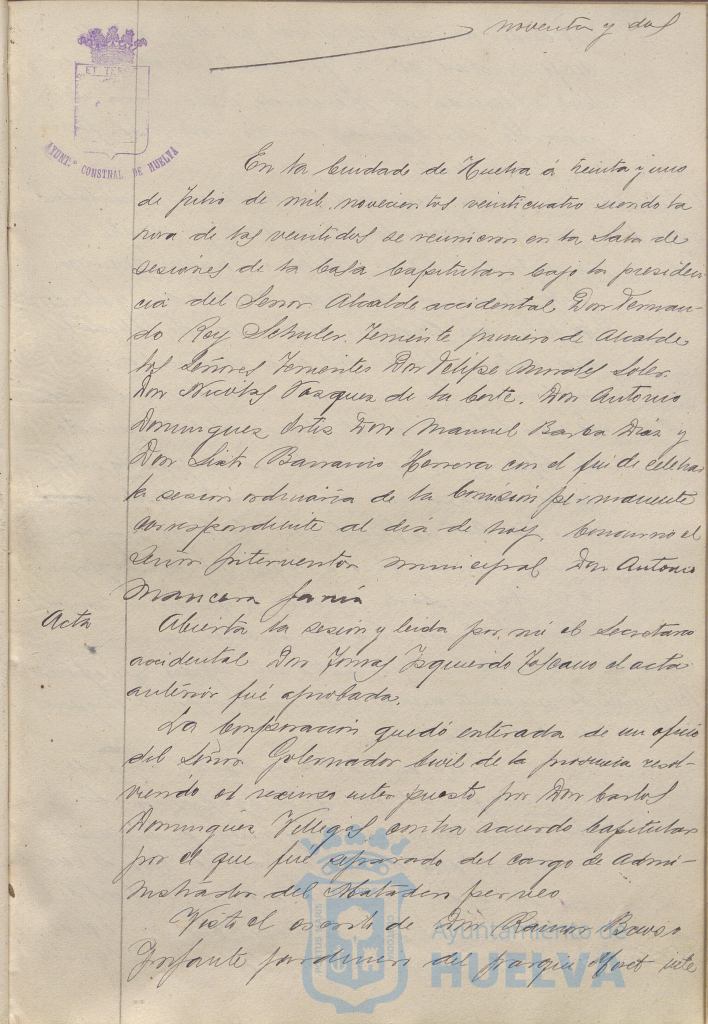 noventa y dos
ET TERRÆ
AYUNT.º CONSTNAL DE HUELVA
En la Ciudad de Huelva á treinta y uno
de Julio de mil novecientos veinticuatro siendo la
hora de las veintidos se reunieron en la Sala de
sesiones de la Casa Capitular bajo la presiden-
cia del Señor Alcalde accidental Don Fernan-
do Rey Schuler. Teniente primero de Alcalde
los Señores Tenientes Don Felipe Morales Soler.
Don Nicolás Vazquez de la Corte. Don Antonio
Dominguez Ortiz Don Manuel Barba Diaz y
Don Sixto Barranco Herrera con el fin de celebrar
la sesion ordinaria de la Comision permanente
correspondiente al dia de hoy. Concurrió el
Señor Interventor municipal Don Antonio
Mancera
Acta
Abierta la sesion y leida por mi el Secretario
accidental Don Tomas Izquierdo Toscano el acta
anterior fué aprobada.
La Corporacion quedó enterada de un oficio
del Señor Gobernador Civil de la provincia resol-
viendo el recurso interpuesto por Don Carlos
Dominguez Villegas contra acuerdo Capitular
por el que fué separado del cargo de Admi-
nistrador del Matadero
Visto el escrito de Don Ramon
Infante jardinero del parque Moret
Ayuntamiento de
HUELVA